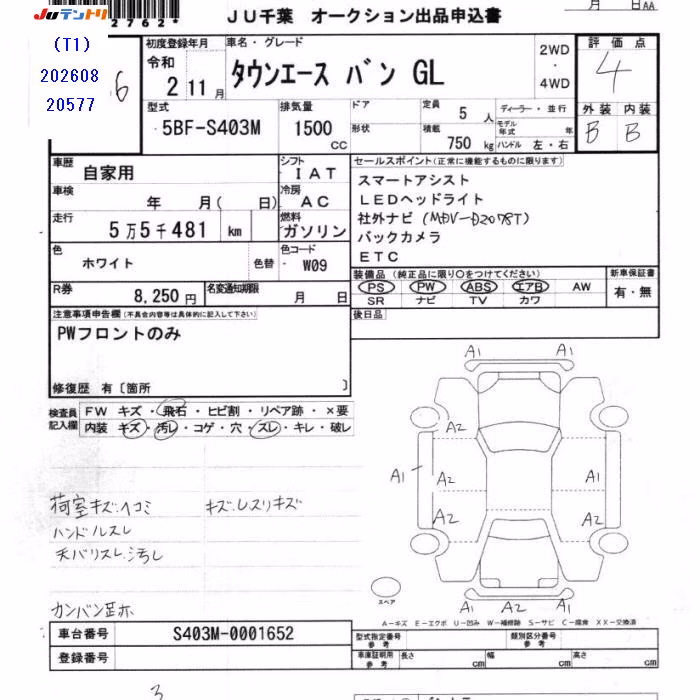 JUテントリ
2762
月 日AA
JU千葉 オークション出品申込書
(T1)
202608
20577
6
初度登録年月
令和
2 11月
車名・グレード
タウンエース バン GL
2WD
・
4WD
評価点
4
型式
5BF-S403M
排気量
1500
CC
ドア
形状
定員
5 人
積載
750 kg
ディーラー・並行
モデル年式 年
ハンドル 左・右
外装 内装
B B
車歴
自家用
シフト
IAT
車検
年 月( 日)
冷房
AC
走行
5万5千481 km
燃料
ガソリン
セールスポイント(正常に機能するものに限ります)
スマートアシスト
LEDヘッドライト
社外ナビ(MDV-D207BT)
バックカメラ
ETC
色
ホワイト
色替
色コード
W09
装備品 (純正品に限り○をつけてください)
PS PW ABS エアB AW
SR ナビ TV カワ
新車保証書
有・無
R券
8,250円
名変通知期限
月 日
後日品
注意事項申告欄(不具合内容等は具体的に記入して下さい)
PWフロントのみ
修復歴 有〔箇所 〕
検査員記入欄
FW キズ・飛石・ヒビ割・リペア跡・×要
内装 キズ・汚レ・コゲ・穴・スレ・キレ・破レ
荷室キズ、ヘコミ キズ、レスリキズ
ハンドルスレ
天バリスレ、汚レ
カンバン跡
A1 A1
A2
A1 A2 A1
A2 A2
A1 A2 A1
スペア
A-キズ E-エクボ U-凹み W-補修跡 S-サビ C-腐食 XX-交換済
車台番号
S403M-0001652
登録番号
型式指定番号
参考
類別区分番号
参考
車庫証明用
参考
長さ cm
幅 cm
高さ cm
3